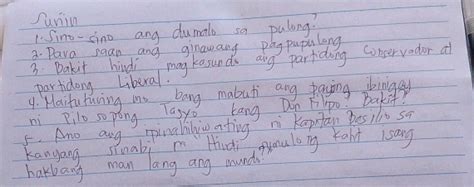 Suriin
1. Sino-sino ang dumalo sa pulong?
2. Para saan ang ginawang pagpupulong
3. Bakit hindi magkasundo ang partidong Conservador at
partidong Liberal?
4. Maituturing mo bang mabuti ang payong ibinigay
ni Pilosopong Tasyo kang Don Filipo? Bakit?
5. Ano ang ipinahihiwating ni Kapitan Basilio sa
kanyang sinabi na "Hindi sumulong kahit isang
hakbang man lang ang mundo?